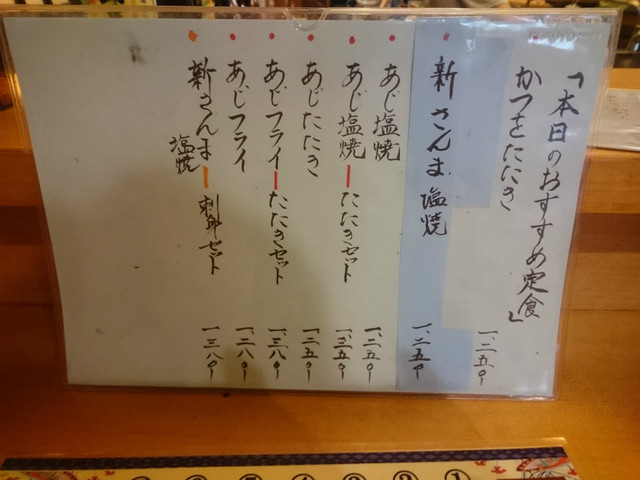 「本日のおすすめ定食」
かつをたたき 一、二五〇
新さんま塩焼 一、二五〇
あじ塩焼 一、二五〇
あじ塩焼ーたたきセット 一、三五〇
あじたたき 一、二五〇
あじフライーたたきセット 一、三八〇
あじフライ 一、二八〇
新さんま塩焼ー刺身セット 一、三八〇